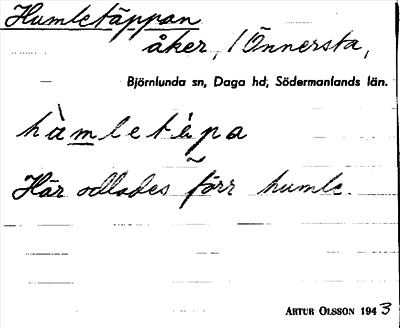 Humletäppan
åker, / Önnersta,
Björnlunda sn, Daga hd, Södermanlands län.
hàmletépa
Här odlades förr humle.
ARTUR OLSSON 1943